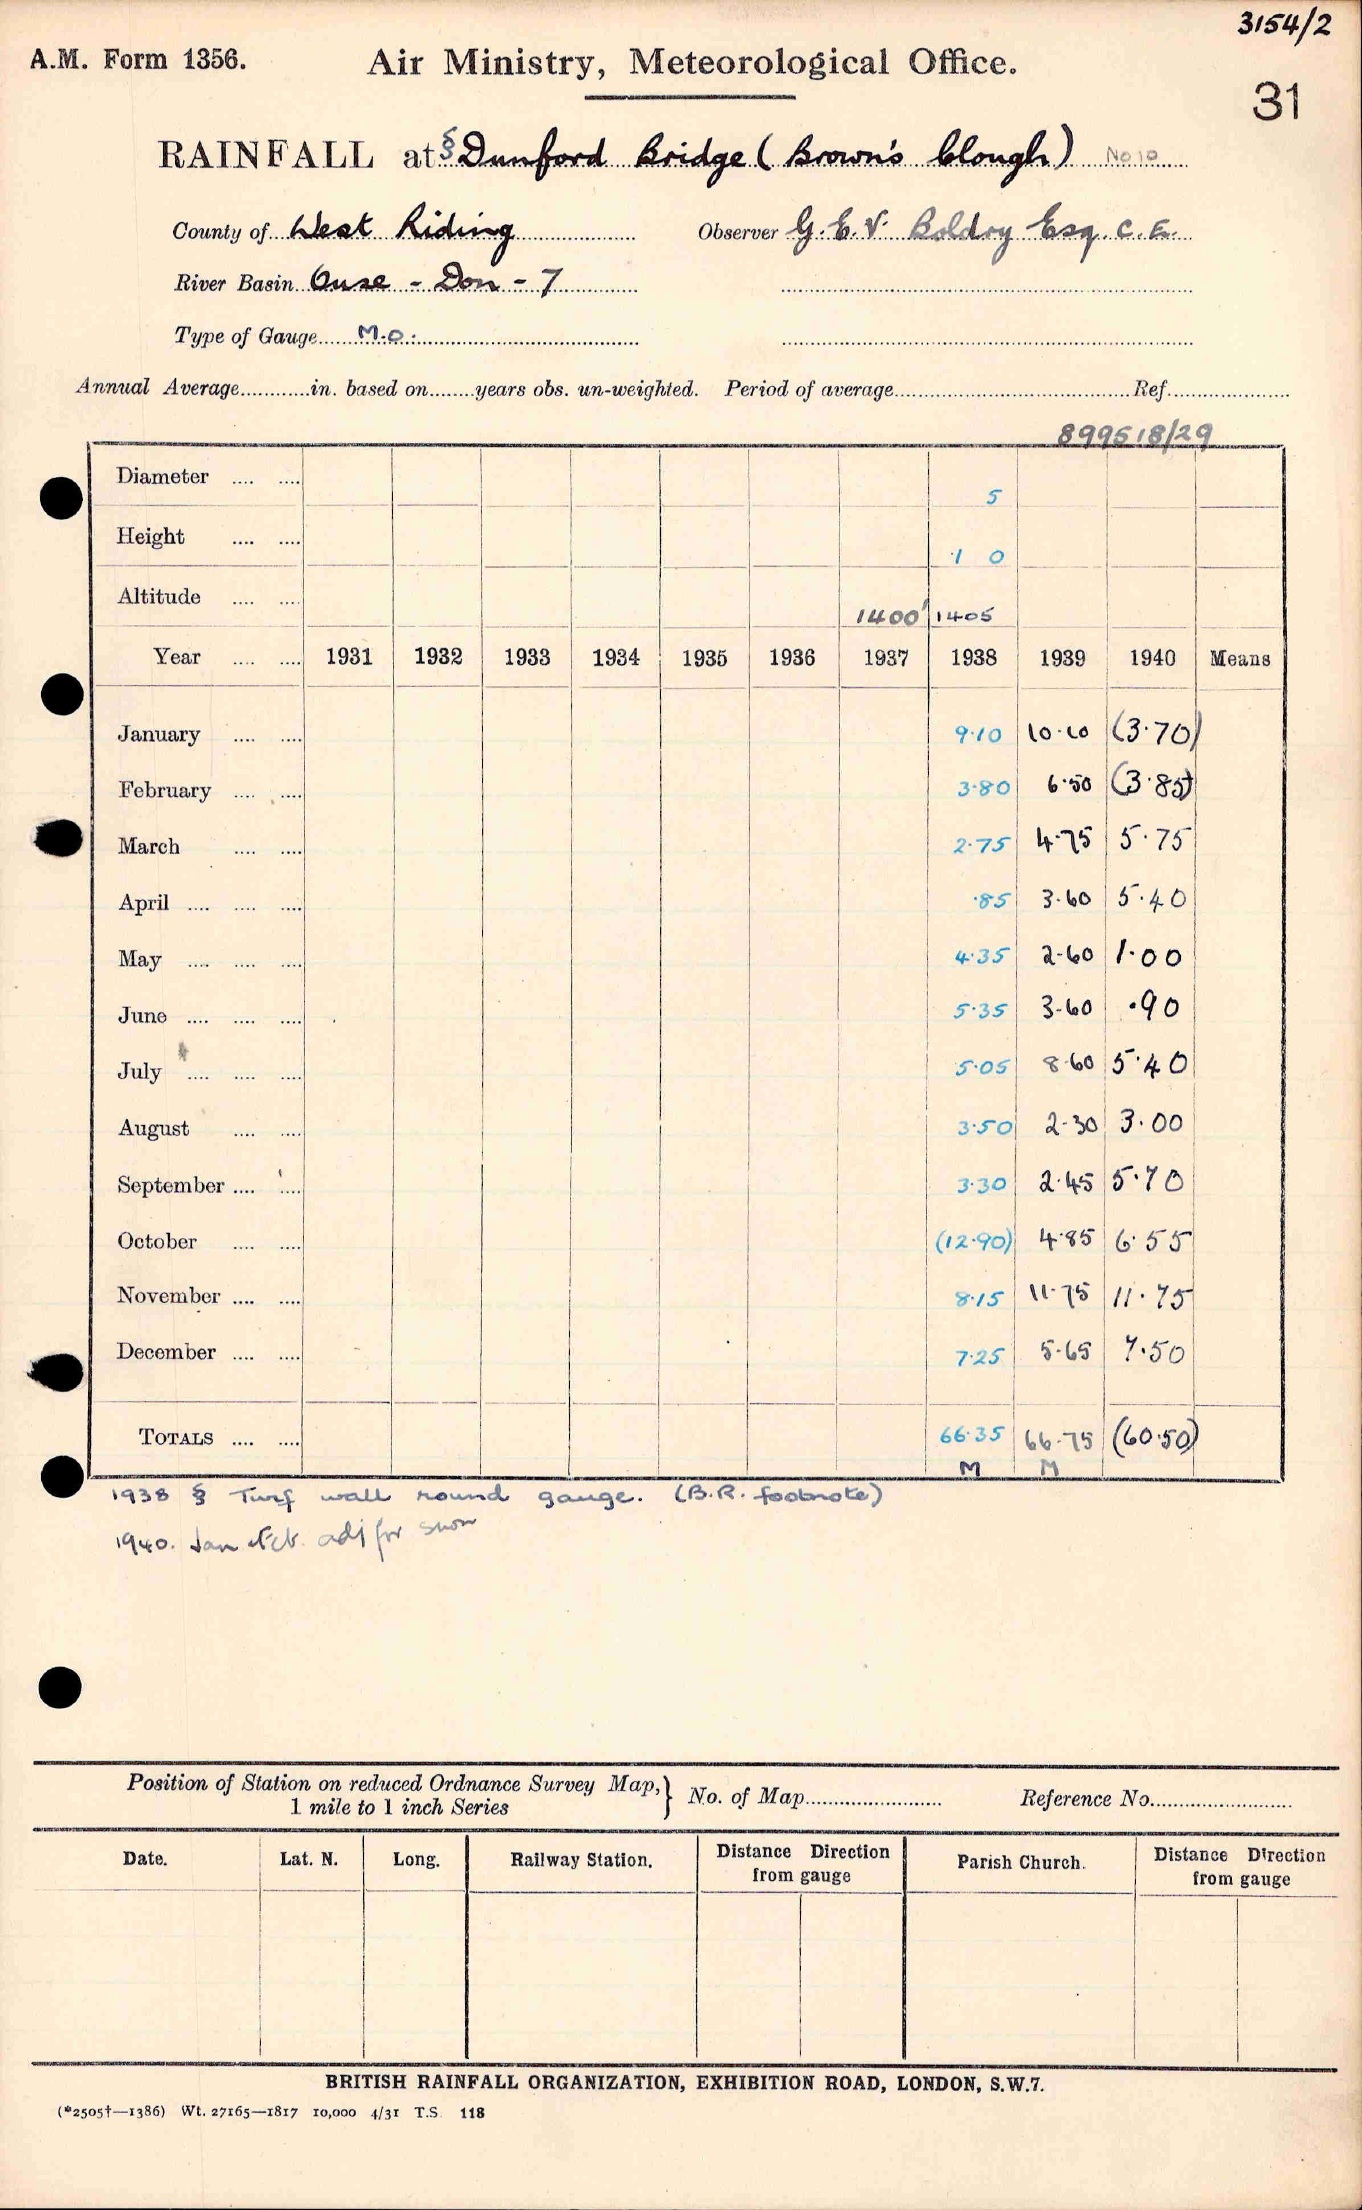 3154/2
A.M. Form 1356. Air Ministry, Meteorological Office.
31
RAINFALL at § Dunford Bridge (Brown's Clough) No 10
County of West Riding Observer G. E. V. Boldry Esq. C. E.
River Basin Ouse - Don - 7
Type of Gauge M.O.
Annual Average............in. based on........years obs. un-weighted. Period of average........................................Ref.....................
899518/29
Diameter .... .... 5
Height .... .... 1 0
Altitude .... .... 1400' 1405
Year .... .... 1931 1932 1933 1934 1935 1936 1937 1938 1939 1940 Means
January .... .... 9.10 10.10 (3.70)
February .... .... 3.80 6.50 (3.85)
March .... .... 2.75 4.75 5.75
April .... .... .... .85 3.60 5.40
May .... .... .... 4.35 2.60 1.00
June .... .... .... 5.35 3.60 .90
July .... .... .... 5.05 8.60 5.40
August .... .... 3.50 2.30 3.00
September .... .... 3.30 2.45 5.70
October .... .... (12.90) 4.85 6.55
November .... .... 8.15 11.75 11.75
December .... .... 7.25 5.65 7.50
TOTALS .... .... 66.35 66.75 (60.50)
M M
1938 § Turf wall round gauge. (B.R. footnote)
1940. Jan & Feb. adj for snow
Position of Station on reduced Ordnance Survey Map, } No. of Map........................ Reference No.........................
1 mile to 1 inch Series
Date. Lat. N. Long. Railway Station. Distance Direction from gauge Parish Church. Distance Direction from gauge
BRITISH RAINFALL ORGANIZATION, EXHIBITION ROAD, LONDON, S.W.7.
(*2505†—1386) Wt. 27165—1817 10,000 4/31 T.S. 118